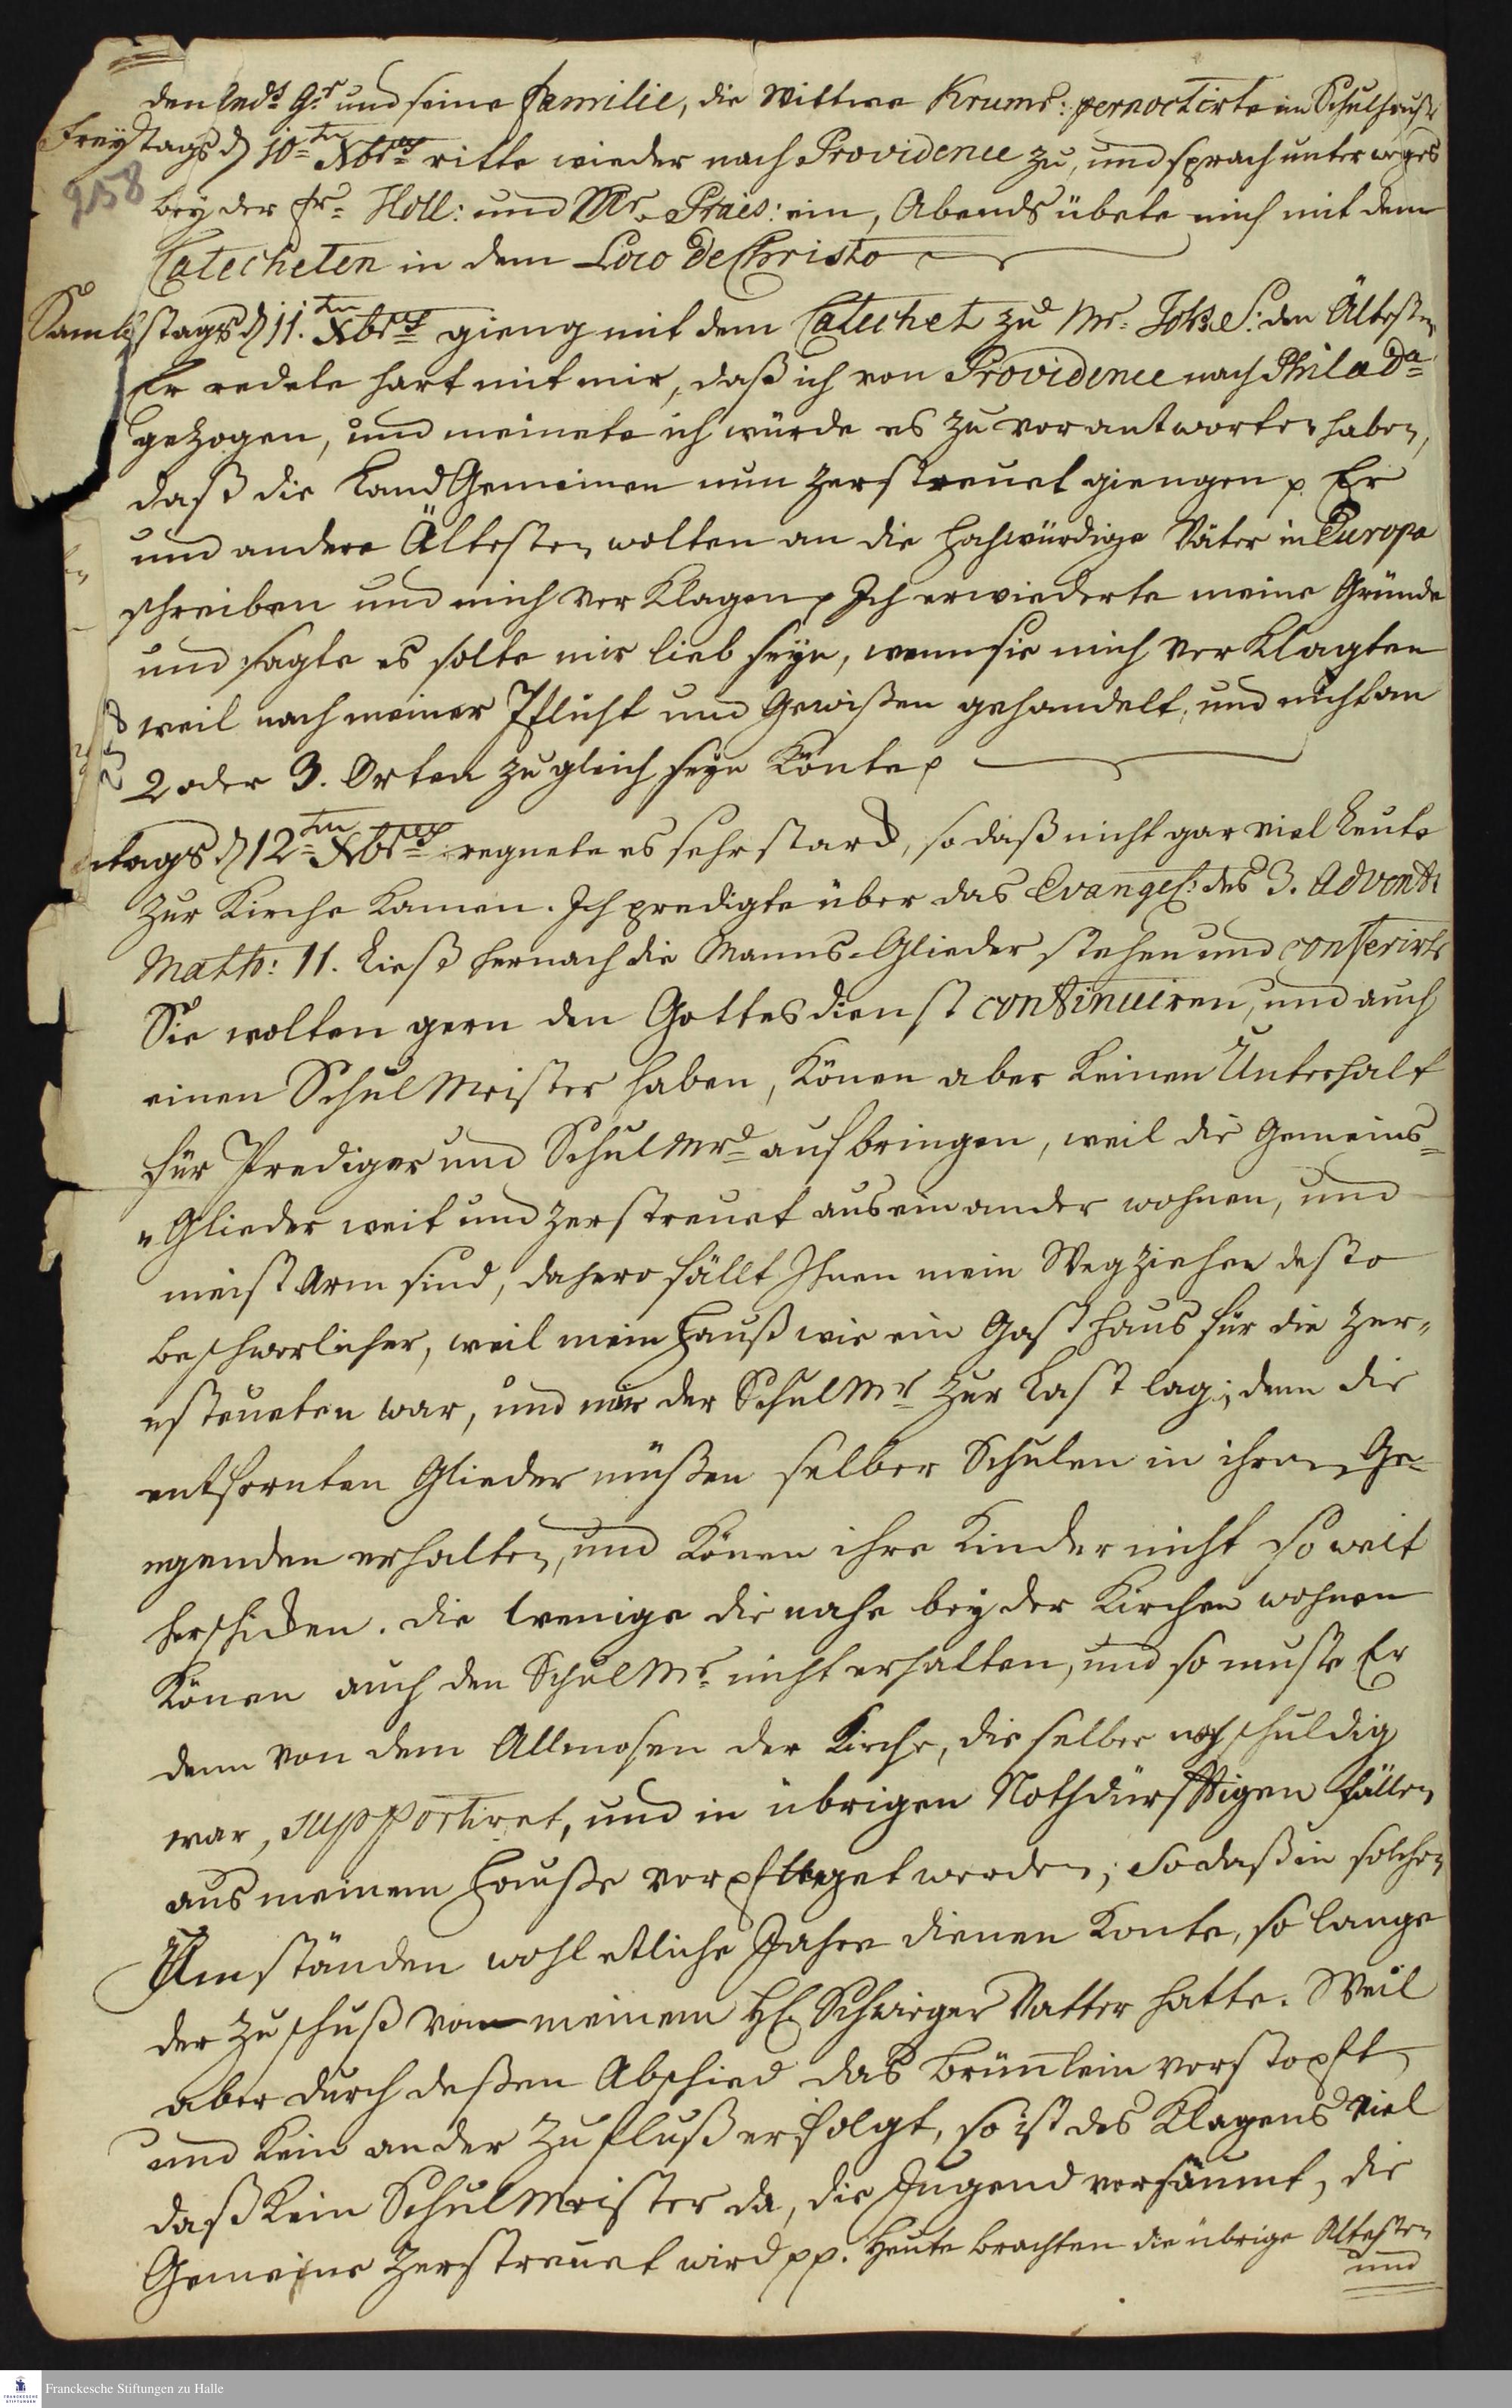 den Ind: Gr und seine Familie, die Wittwe Krums: pernoctirte im Schulhauße
Freytags d 10ten Xbris ritte wieder nach Providence zu, und sprach unterweges
958
bey der Fr. Holl: und Mr. Prais: ein, Abends übete mich mit dem
Catecheten in dem Loco de Christo
Sambstags d 11ten Xbris gieng mit dem Catechet zu Mr. Joh. S: den Ältesten
Er redete hart mit mir, daß ich von Providence nach Philada
gezogen, und meinete ich würde es zu verantworten haben,
daß die Land Gemeinen nun zerstreuet giengen p. Er
und andere Ältesten wolten an die Hochwürdige Väter in Europa
schreiben und mich verklagen p Ich erwiederte meine Gründe
und sagte es solte mir lieb seyn, wenn sie mich verklagten
weil nach meiner Pflicht und Gewißen gehandelt, und nicht an
2 oder 3. Orten zugleich seyn könte p
tags d 12ten Xbris regnete es sehr starck, so daß nicht gar viel Leute
zur Kirche kamen. Ich predigte über das Evangel: des 3. Advents
Matth: 11. Ließ hernach die Manns-Glieder stehen und conferirte
Sie wolten gern den Gottesdienst continuiren, und auch
einen SchulMeister haben, könen aber keinen Unterhalt
für Prediger und SchulMr aufbringen, weil die Gemeins-
Glieder weit und zerstreuet auseinander wohnen, und
meist Arm sind, dahero fällt Ihnen mein Wegziehen desto
beschwerlicher, weil mein Hauß wie ein Gasthaus für die Zer-
streueten war, und mir der SchulMr zur Last lag; denn die
entfernten Glieder müßen selber Schulen in ihren Ge-
genden erhalten, und könen ihre Kinder nicht so weit
herschicken. die wenige die nahe bey der Kirchen wohnen
könen auch den SchulMr nicht erhalten, und so muste Er
denn von dem Allmosen der Kirche, die selber noch schuldig
war, supportiret, und in übrigen Nothdürfftigen Fällen
aus meinem Hauße verpfleget werden; So daß in solchen
Umständen wohl etliche Jahre dienen konte, so lange
der Zuschuß von meinem H. Schwieger Vatter hatte. Weil
aber durch deßen Abschied das Brünlein verstopft
und kein ander Zufluß erfolgt, so ist des Klagens viel
daß kein SchulMeister da, die Jugend versäumt, die
Gemeine zerstreuet wird pp. Heute brachten die übrige Altesten
und
Franckesche Stiftungen zu Halle